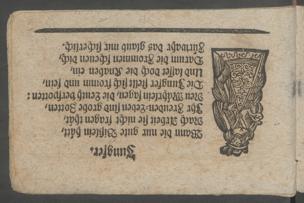 Jungfer.
Wann die nur gute Bißlein hätt,
Nach Arbeit sie nicht fragen thät,
Ihr Freuden-Leben sind grobe Zoten,
Den Mägdlein sagen, die Leuth verspotten:
Die Jungfer sich stellt fromm und fein
Und lasset doch die Knaben ein
Darum die Frommen scheuen dich,
Fürwahr das glaub mir sicherlich.